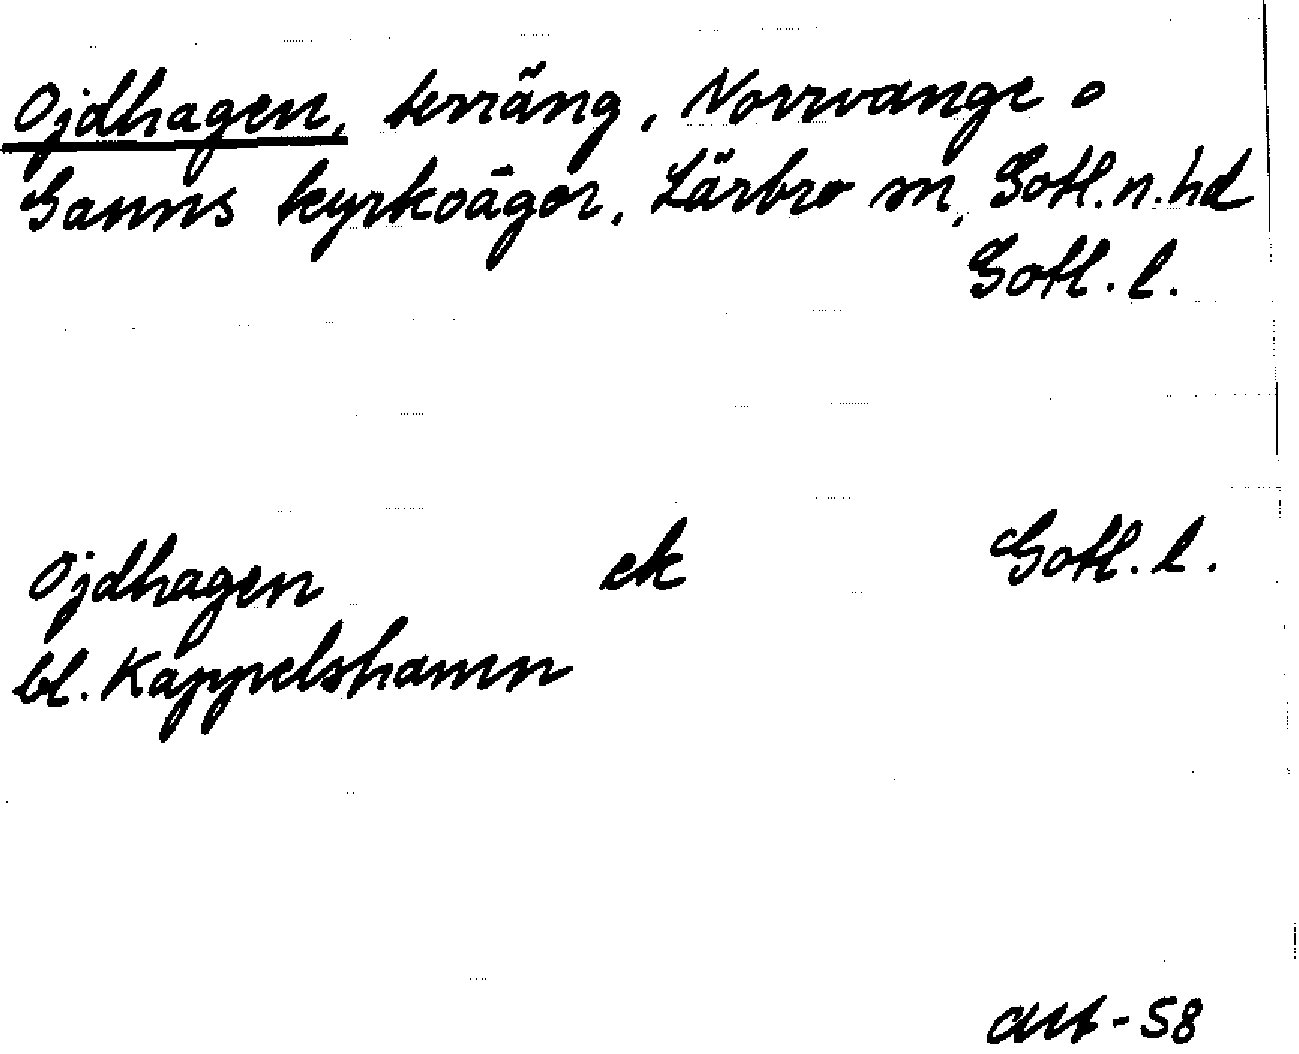 Ojdhagen, terräng, Norrvange o
Ganns kyrkoägor, Lärbro sn, Gotl. n. hd
Gotl. l.
Ojdhagen ek Gotl. l.
bl. Kappelshamn
-58